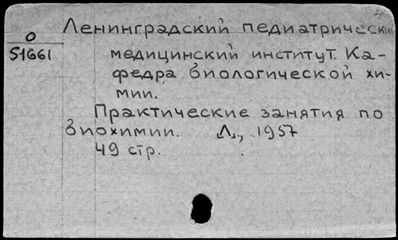 Ленинградский педиатрический
О
51661
медицинский институт. Ка-
федра биологической хи-
мии.
Практические занятия по
биохимии. Л., 1957
49 стр.